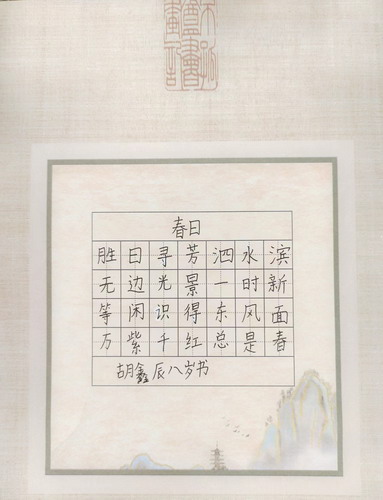 春日
胜日寻芳泗水滨
无边光景一时新
等闲识得东风面
万紫千红总是春
胡鑫辰八岁书